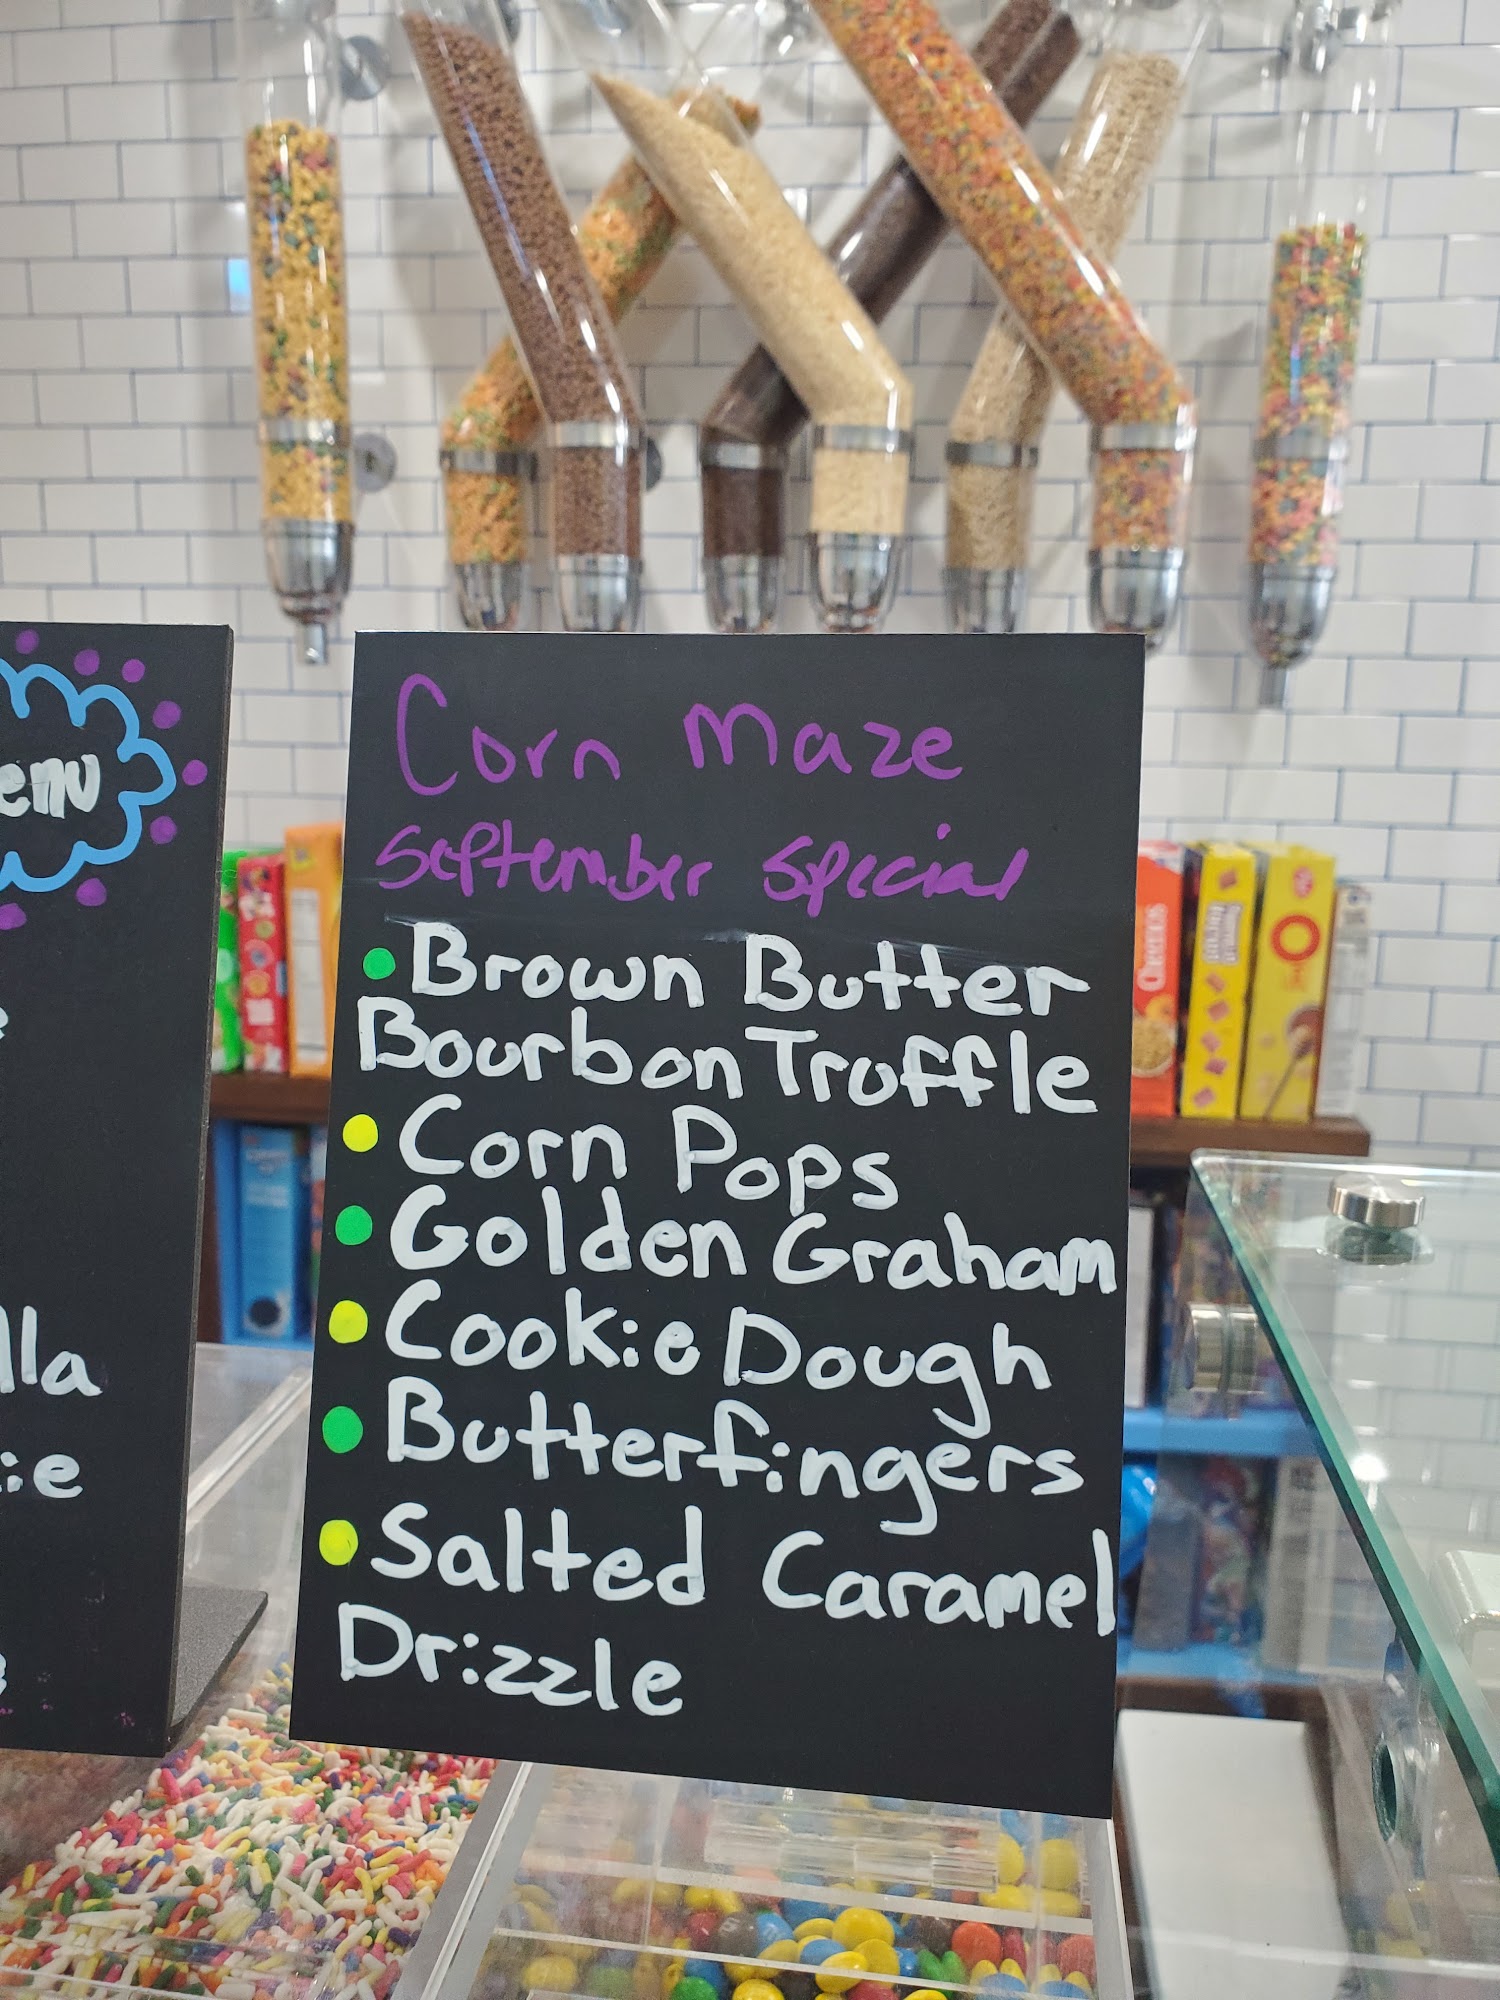 Corn Maze
September Special
Brown Butter
Bourbon Truffle
Corn Pops
Golden Graham
Cookie Dough
Butterfingers
Salted Caramel
Drizzle
enu
lla
ie
Cheerios